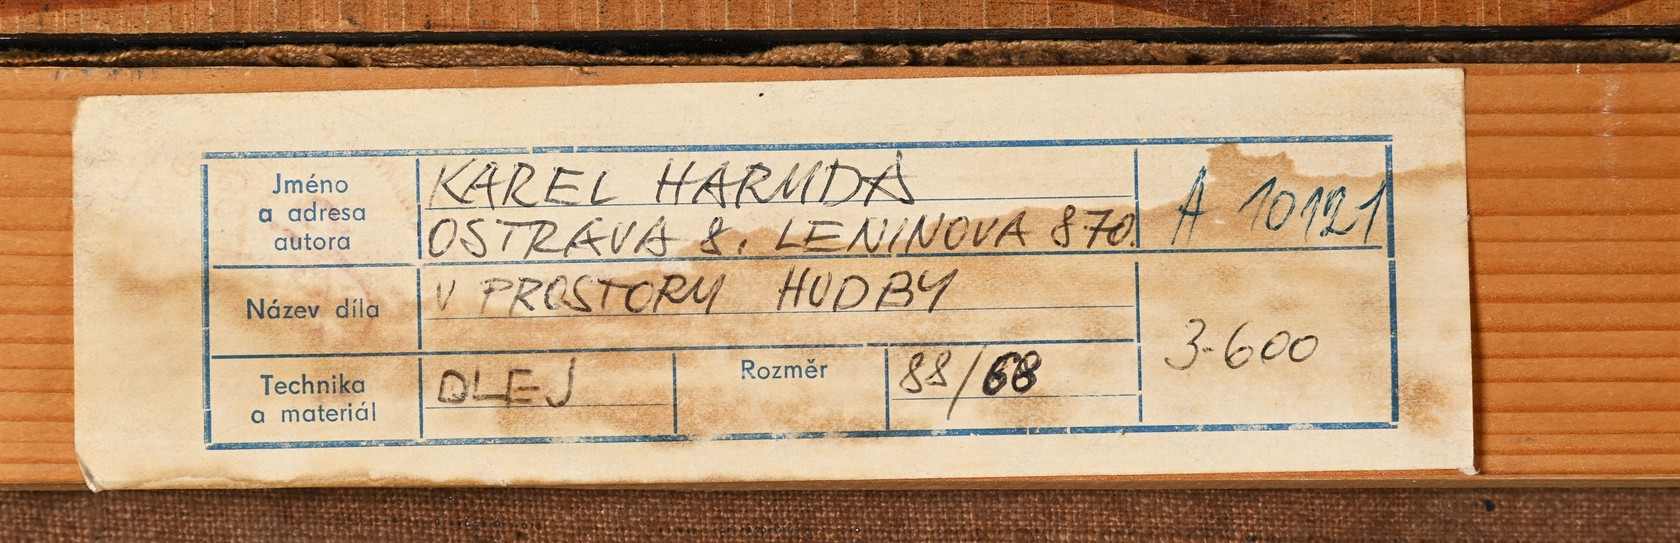 Jméno
a adresa
autora
KAREL HARUDA
OSTRAVA 8. LENINOVA 870.
A 10121
Název díla
V PROSTORU HUDBY
3-600
Technika
a materiál
OLEJ
Rozměr
88/68